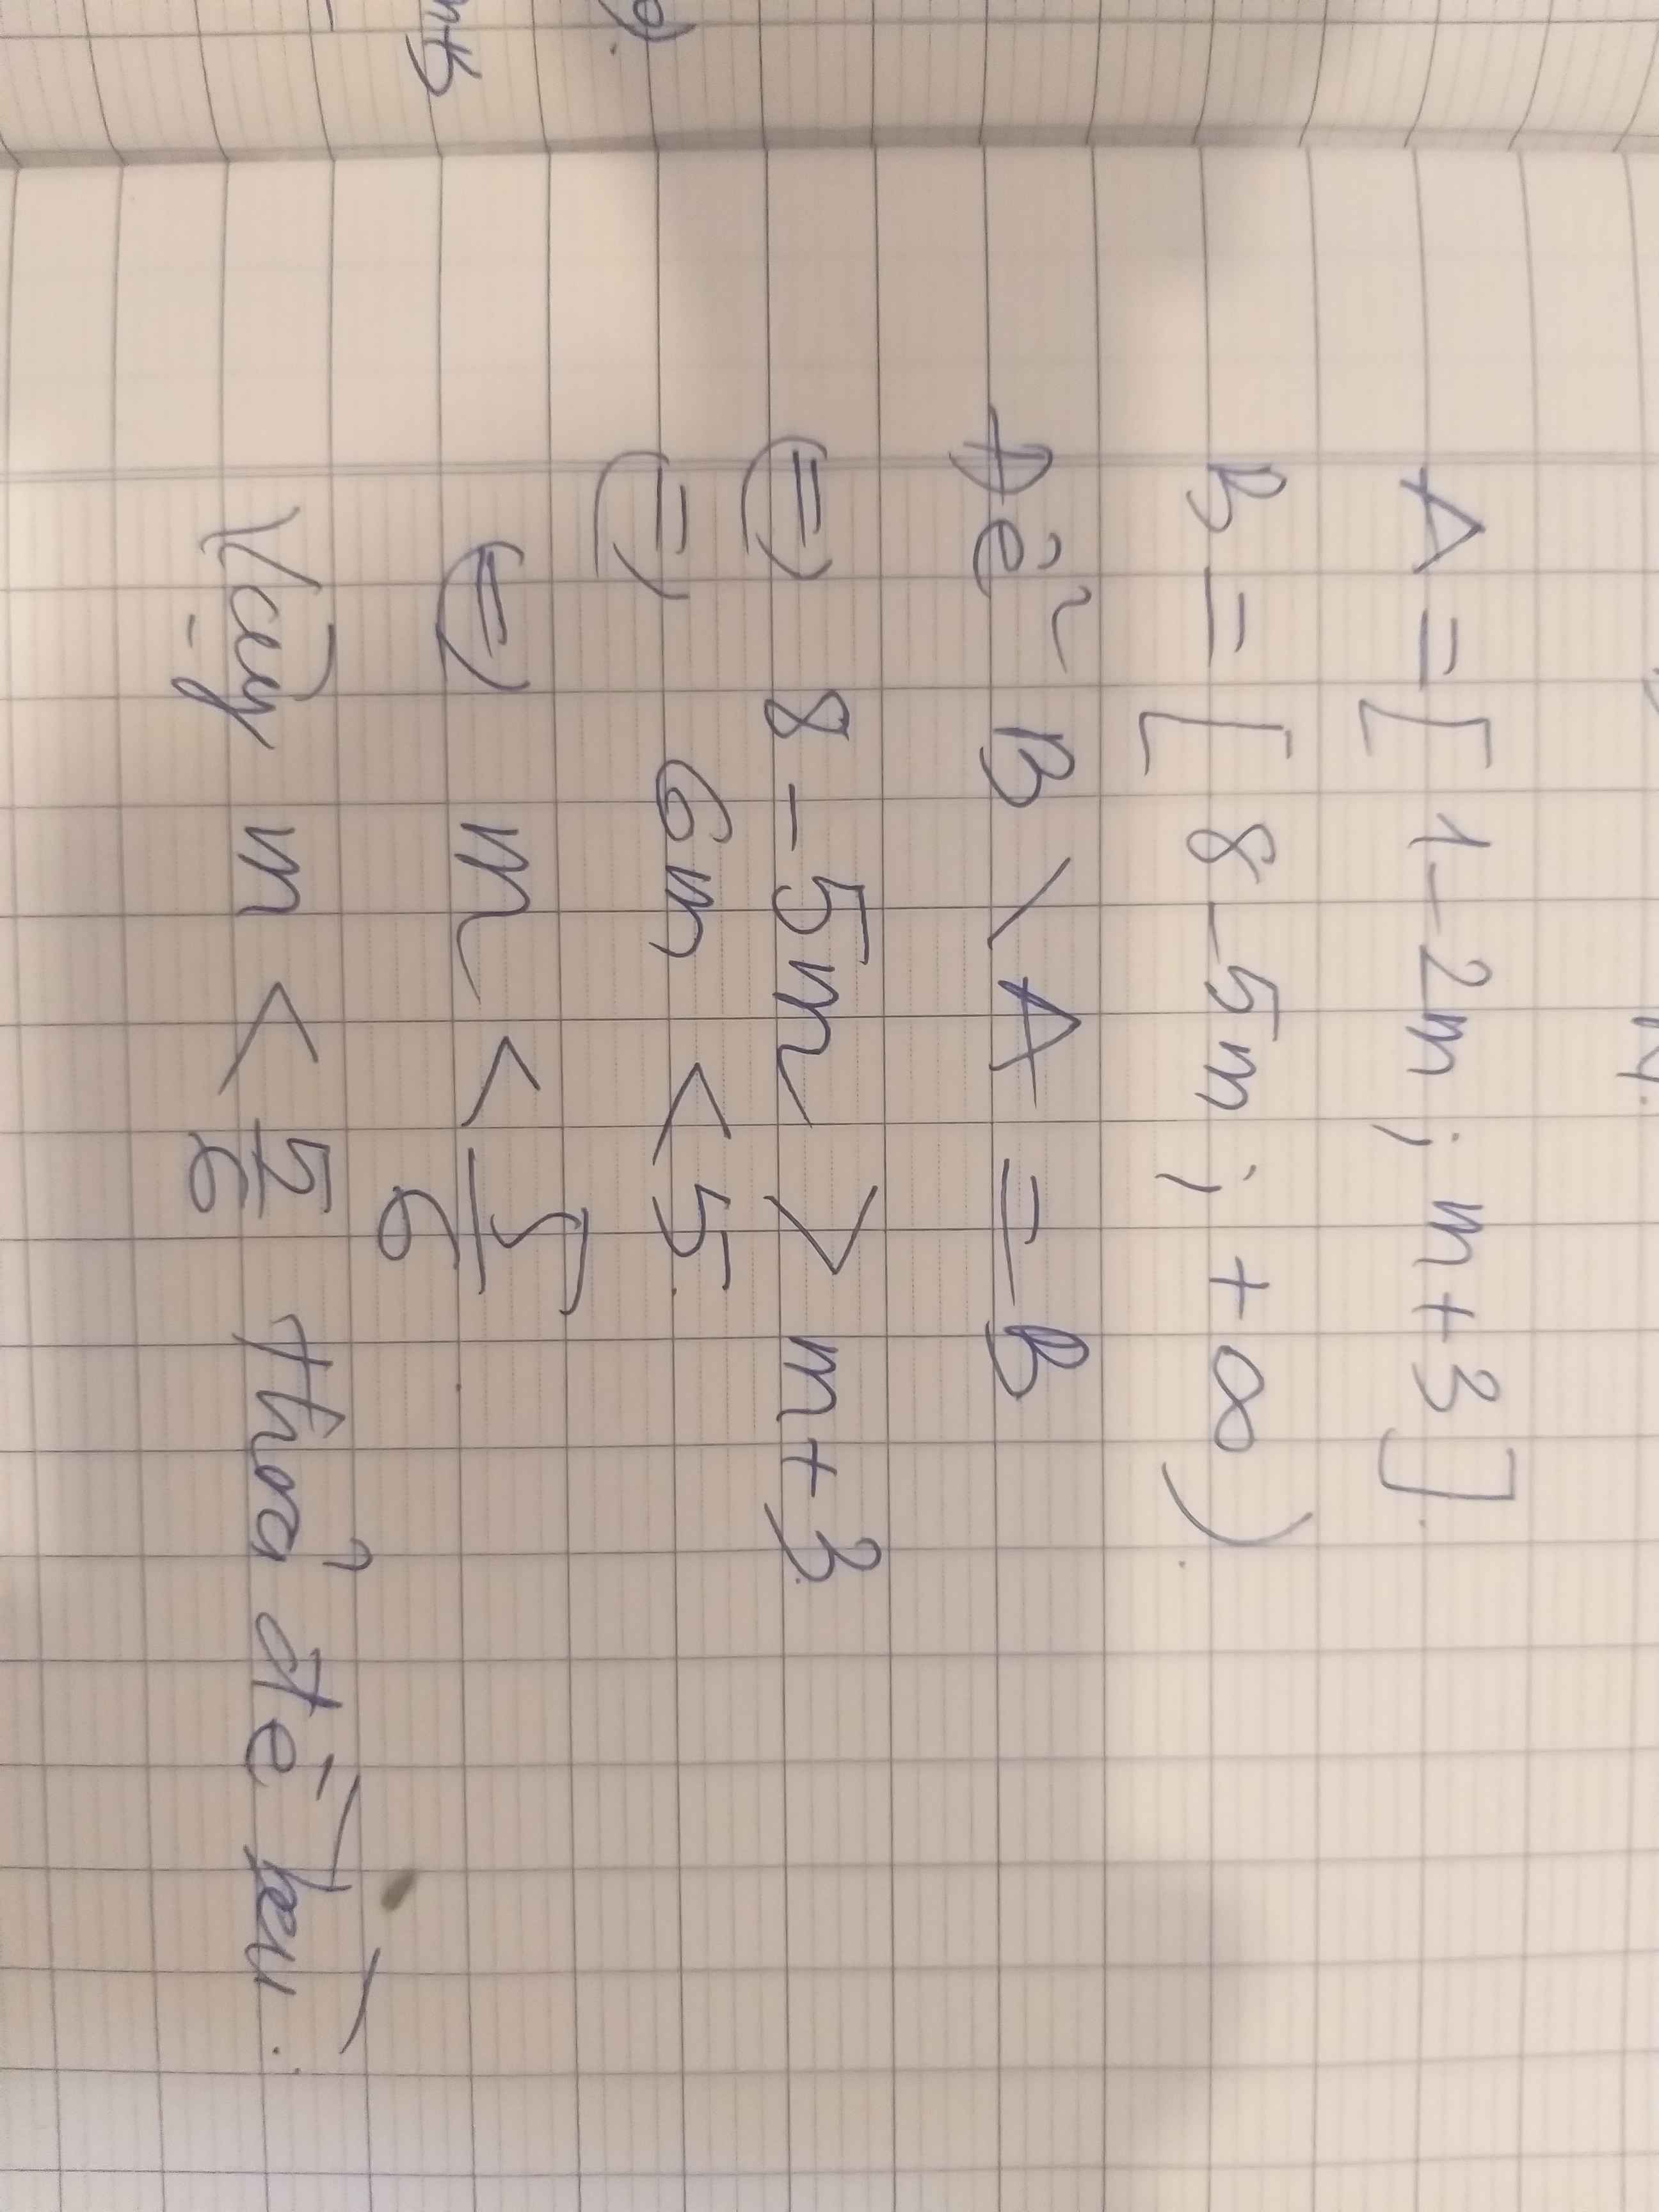 A = [1-2m; m+3].
B = [8-5m; +∞).
Để B \ A = B
⇔ 8-5m > m+3.
⇔ 6m < 5.
⇔ m < 5/6
Vậy m < 5/6 thoả đề